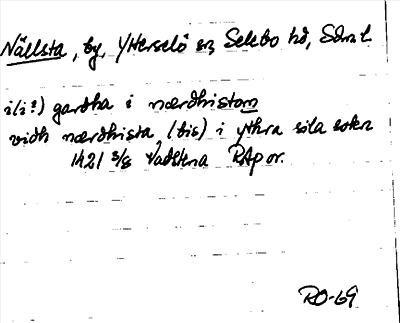 Nällsta, by, Ytterselö sn, Selebo hd, Sdml.
i(i?) gardha i nærdhistom
vidh nærdhista (bis) i ythra sila sokn
1421 5/8 Vadstena RAp or.
RO-69